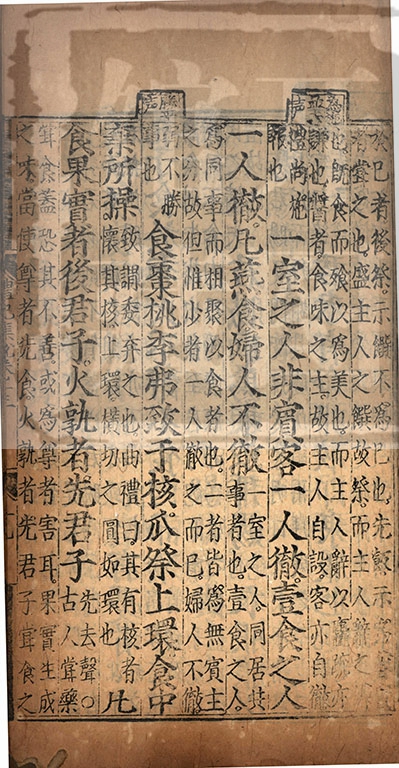 於已者後祭示饌不爲已也先飯示
者嘗之也盛主人之饌故祭而主人辭之
也既食而飧以爲美也而主人辭以麤亦
謙也醬者食味之主故主人自設客亦自徹
禮尚施報也 一室之人非賓客一人徹壹食之人
一人徹凡燕食婦人不徹 一室之人同居共事者也壹食之人
爲同事而相聚以食者也二者皆爲無賓主
之分故但惟少者一人徹之而已婦人不徹
弱不勝事也 食棗桃李弗致于核瓜祭上環食中
棄所操 致謂委弃之也曲禮曰其有核者懷其核上環橫切之圓如環也 凡
食果實者後君子火孰者先君子 先去聲○古人嘗藥
嘗食蓋恐其不善或爲尊者害耳果實生成
之味當使尊者先食火孰者先君子嘗食之